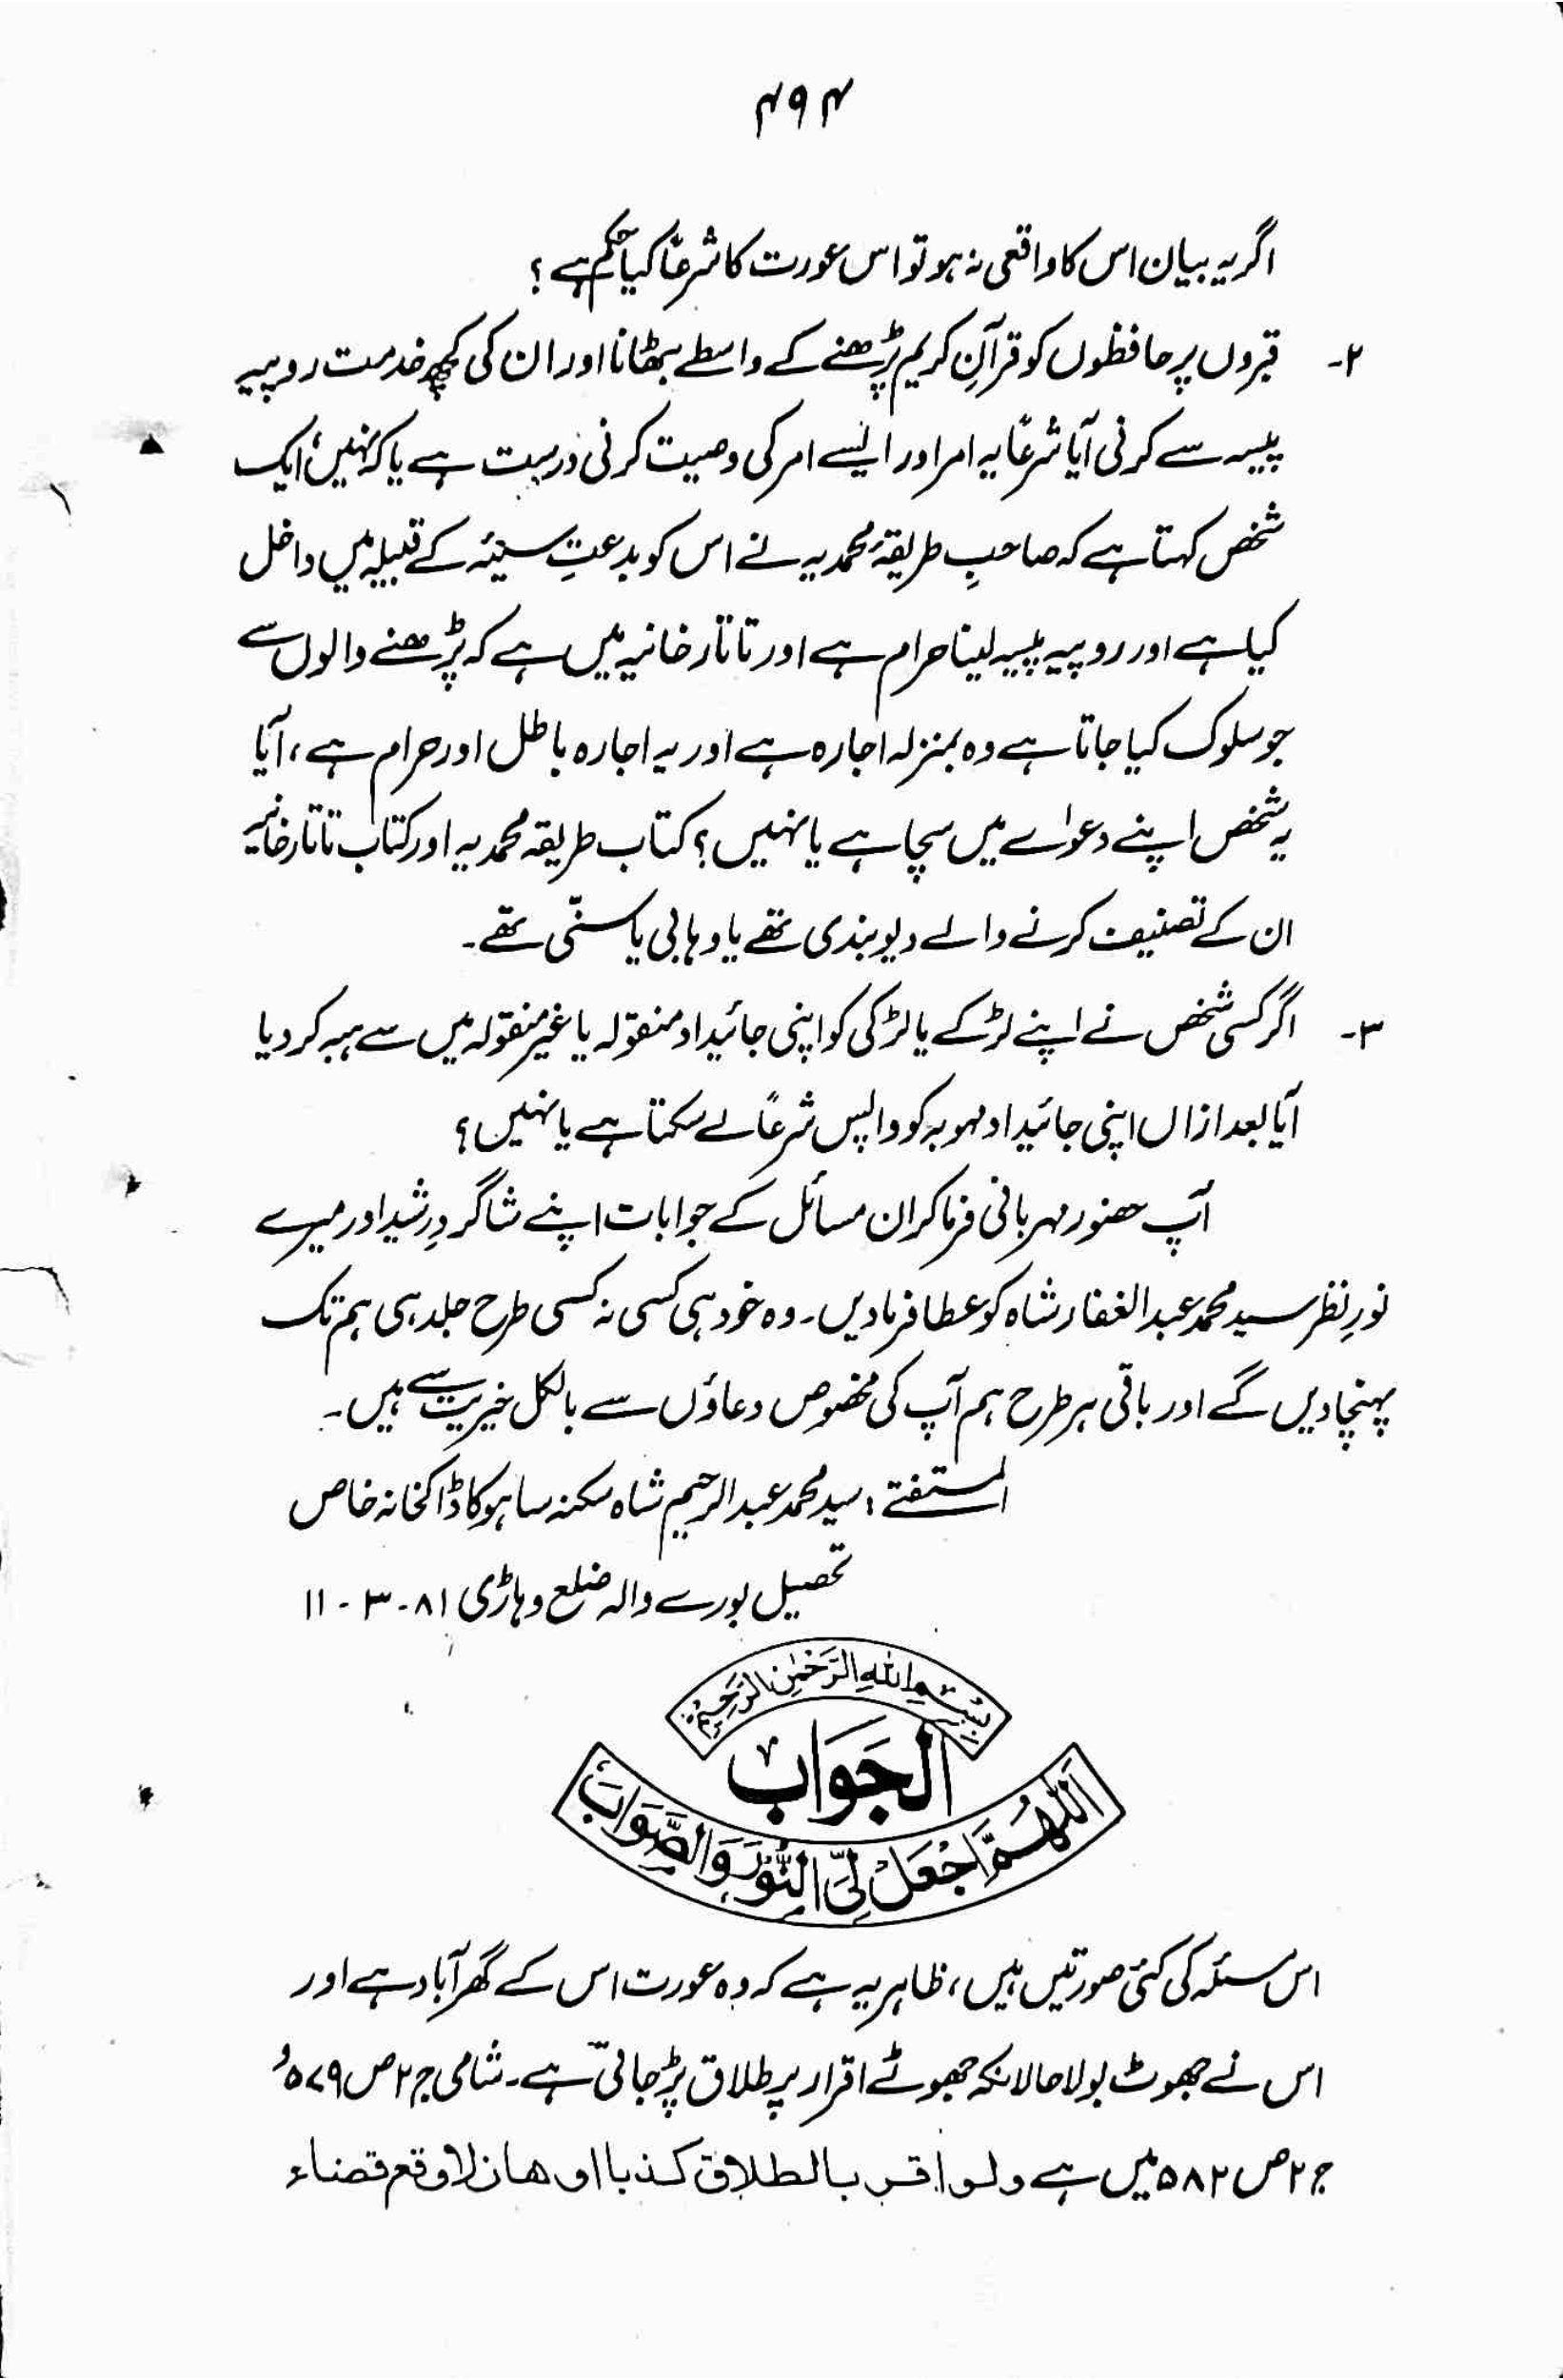 ۴۹۴
اگر یہ بیان اس کا واقعی نہ ہو تو اس عورت کا شرعًا کیا حکم ہے؟
۲۔ قبروں پر حافظوں کو قرآنِ کریم پڑھنے کے واسطے بٹھانا اور ان کی کچھ خدمت روپیہ
پیسہ سے کرنی آیا شرعًا یہ امر اور ایسے امر کی وصیت کرنی درست ہے یا کہ نہیں؛ ایک
شخص کہتا ہے کہ صاحبِ طریقۂ محمدیہ نے اس کو بدعتِ سیئہ کے قبیلہ میں داخل
کیا ہے اور روپیہ پیسہ لینا حرام ہے اور تاتارخانیہ میں ہے کہ پڑھنے والوں سے
جو سلوک کیا جاتا ہے وہ بمنزلہ اجارہ ہے اور یہ اجارہ باطل اور حرام ہے، آیا
یہ شخص اپنے دعوٰے میں سچا ہے یا نہیں؟ کتاب طریقہ محمدیہ اور کتاب تاتارخانیہ
ان کے تصنیف کرنے والے دیوبندی تھے یا وہابی یا سنّی تھے۔
۳۔ اگر کسی شخص نے اپنے لڑکے یا لڑکی کو اپنی جائیداد منقولہ یا غیر منقولہ میں سے ہبہ کر دیا
آیا بعد ازاں اپنی جائیداد موہوبہ کو واپس شرعًا لے سکتا ہے یا نہیں؟
آپ حضور مہربانی فرما کر ان مسائل کے جوابات اپنے شاگردِ رشید اور میرے
نورِ نظر سید محمد عبدالغفار شاہ کو عطا فرما دیں۔ وہ خود ہی کسی نہ کسی طرح جلد ہی ہم تک
پہنچا دیں گے اور باقی ہر طرح ہم آپ کی مخصوص دعاؤں سے بالکل خیریت سے ہیں۔
المستفتے: سید محمد عبدالرحیم شاہ سکنہ ساہوکا ڈاکخانہ خاص
تحصیل بورے والہ ضلع وہاڑی ۸۱-۳-۱۱
بِسْمِ اللهِ الرَّحْمٰنِ الرَّحِيْمِ
الجَوَاب
اَللّٰهُمَّ اجْعَلْ لِيَ النُّوْرَ وَالصَّوَابَ
اس مسئلہ کی کئی صورتیں ہیں، ظاہر یہ ہے کہ وہ عورت اس کے گھر آباد ہے اور
اس نے جھوٹ بولا حالانکہ جھوٹے اقرار پر طلاق پڑ جاتی ہے۔ شامی ج۲ ص۵۷۹ و
ج۲ ص۵۸۲ میں ہے ولو اقر بالطلاق کذبا او ھازلا وقع قضاء